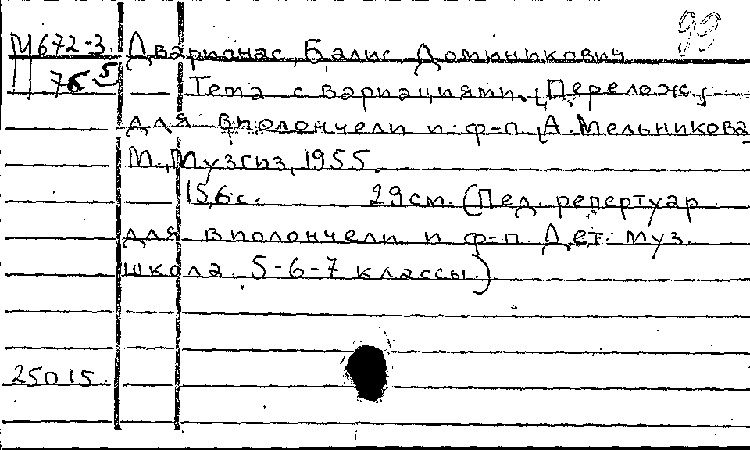 99
М672-3 Дварионас, Балис Доминикович
75 Тема с вариациями. [Перелож.]
для виолончели и ф-п [А. Мельникова
М., Музгиз, 1955.
15,6 с. 29 см. (Пед. репертуар
для виолончели и ф-п. Дет. муз.
школа. 5-6-7 классы)
25015